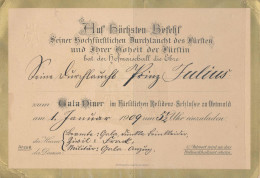 Auf Höchsten Befehl
Seiner Hochfürstlichen Durchlaucht des Fürsten
und Ihrer Hoheit der Fürstin
hat der Hofmarschall die Ehre
Seine Durchlaucht Prinz Julius
zum Gala Diner im Fürstlichen Residenz Schlosse zu Detmold
am 1. Januar 1909 um Uhr einzuladen
Beamte: Gala,
Die Herren Zivil: Frack
Militär: Gala Anzug
Die Damen